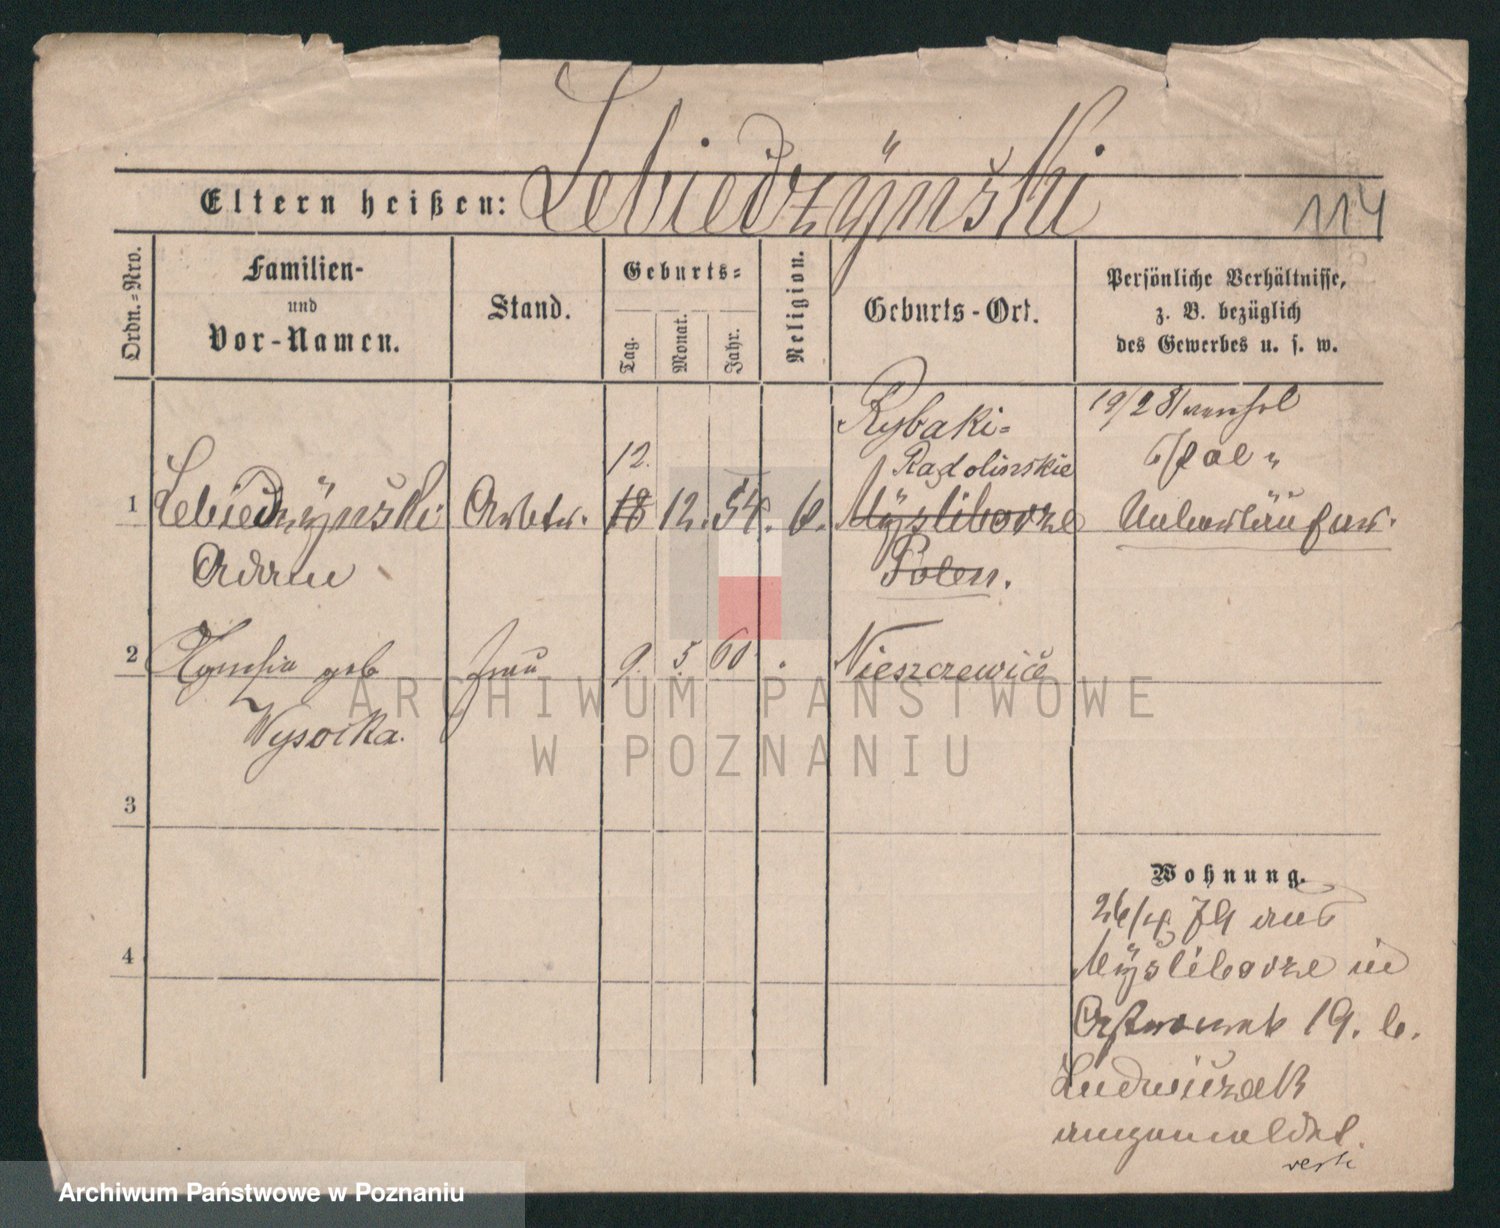 Eltern heißen: Lebiedzÿnski
114
Ordn.=Nro.
Familien-
und
Vor-Namen.
Stand.
Geburts=
Tag.
Monat.
Jahr.
Religion.
Geburts-Ort.
Persönliche Verhältnisse,
z. B. bezüglich
des Gewerbes u. s. w.
1
Lebiedzÿnski
Adam
Arbtr.
12.
18 12. 54.
Rybaki-
Radolinskie
Mÿsliborze
Polen.
19/2 81
Ueberläufer.
2
Agnesia geb
Wysocka.
Frau
9. 5. 60
Nieszczewice
3
4
Wohnung.
26/4. 79 aus
Mÿsliborze in
Ostrowek 19. b.
Ludwiczak
angemeldet.
verte
ARCHIWUM PAŃSTWOWE
W POZNANIU
Archiwum Państwowe w Poznaniu